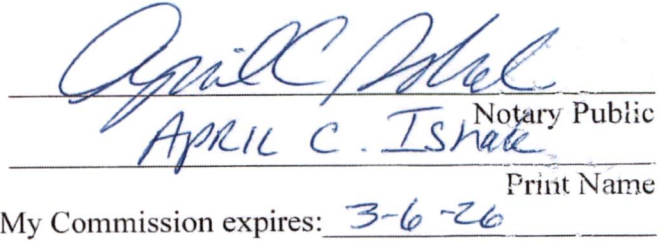 April C
Notary Public
APRIL C.
Print Name
My Commission expires: 3-6-26